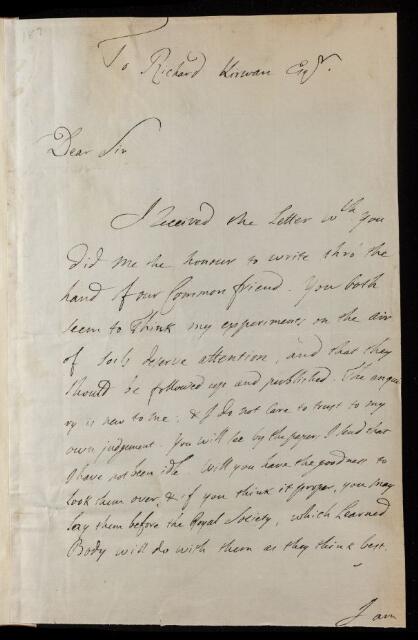 187
To Richard Kirwan Esqr.
Dear Sir
I received the Letter wch you
did me the honour to write thro' the
hand of our Common friend. You both
seem to think my experiments on the air
of soils deserve attention, and that they
should be followed up and published. The enqui
ry is new to me, & I do not care to trust to my
own judgement. You will see by the papers I send that
I have not been idle. Will you have the goodness to
look them over, & if you think it proper, you may
lay them before the Royal Society, which Learned
Body will do with them as they think best.
I am